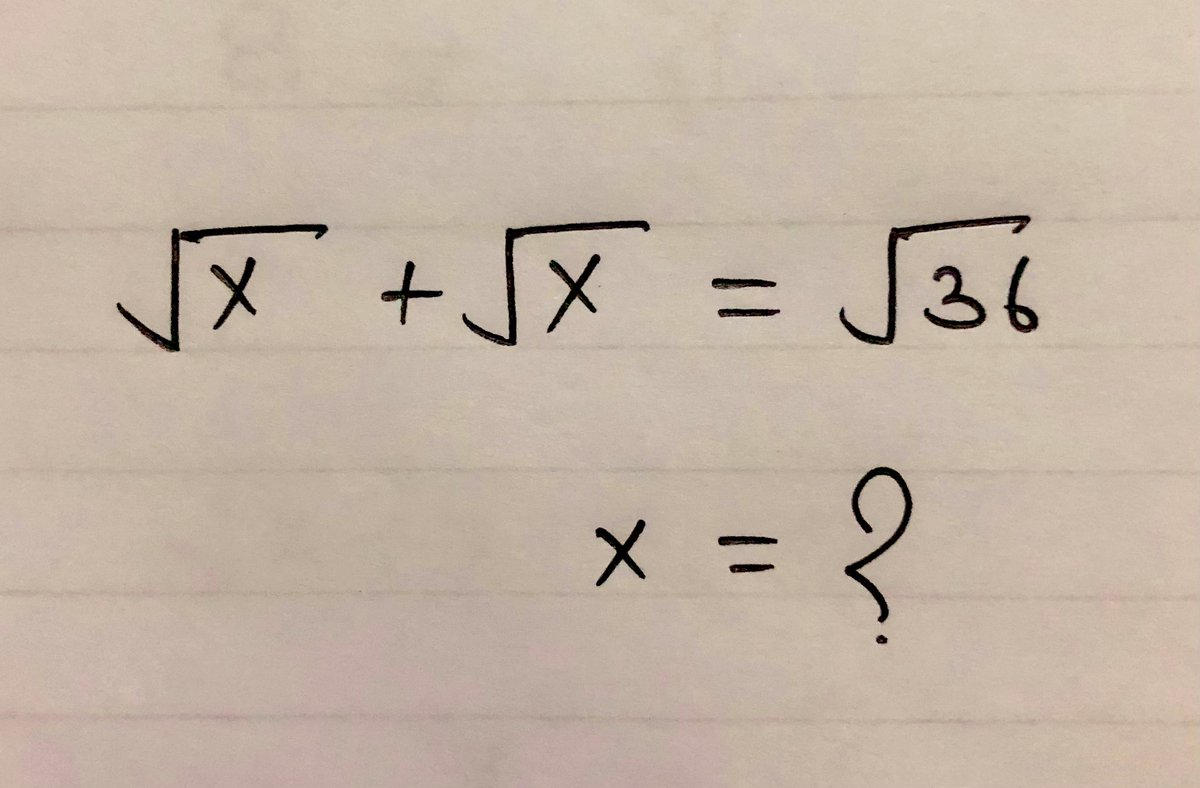 √x + √x = √36
x = ?